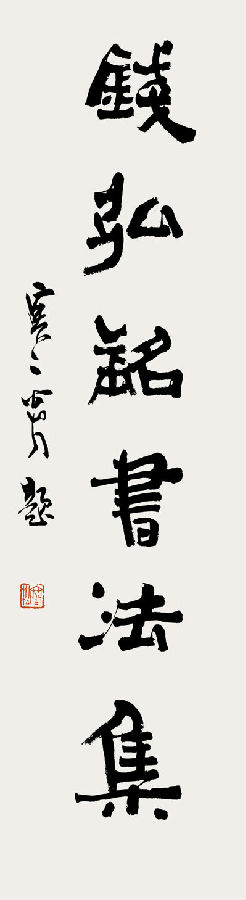 錢弘銘書法集
題